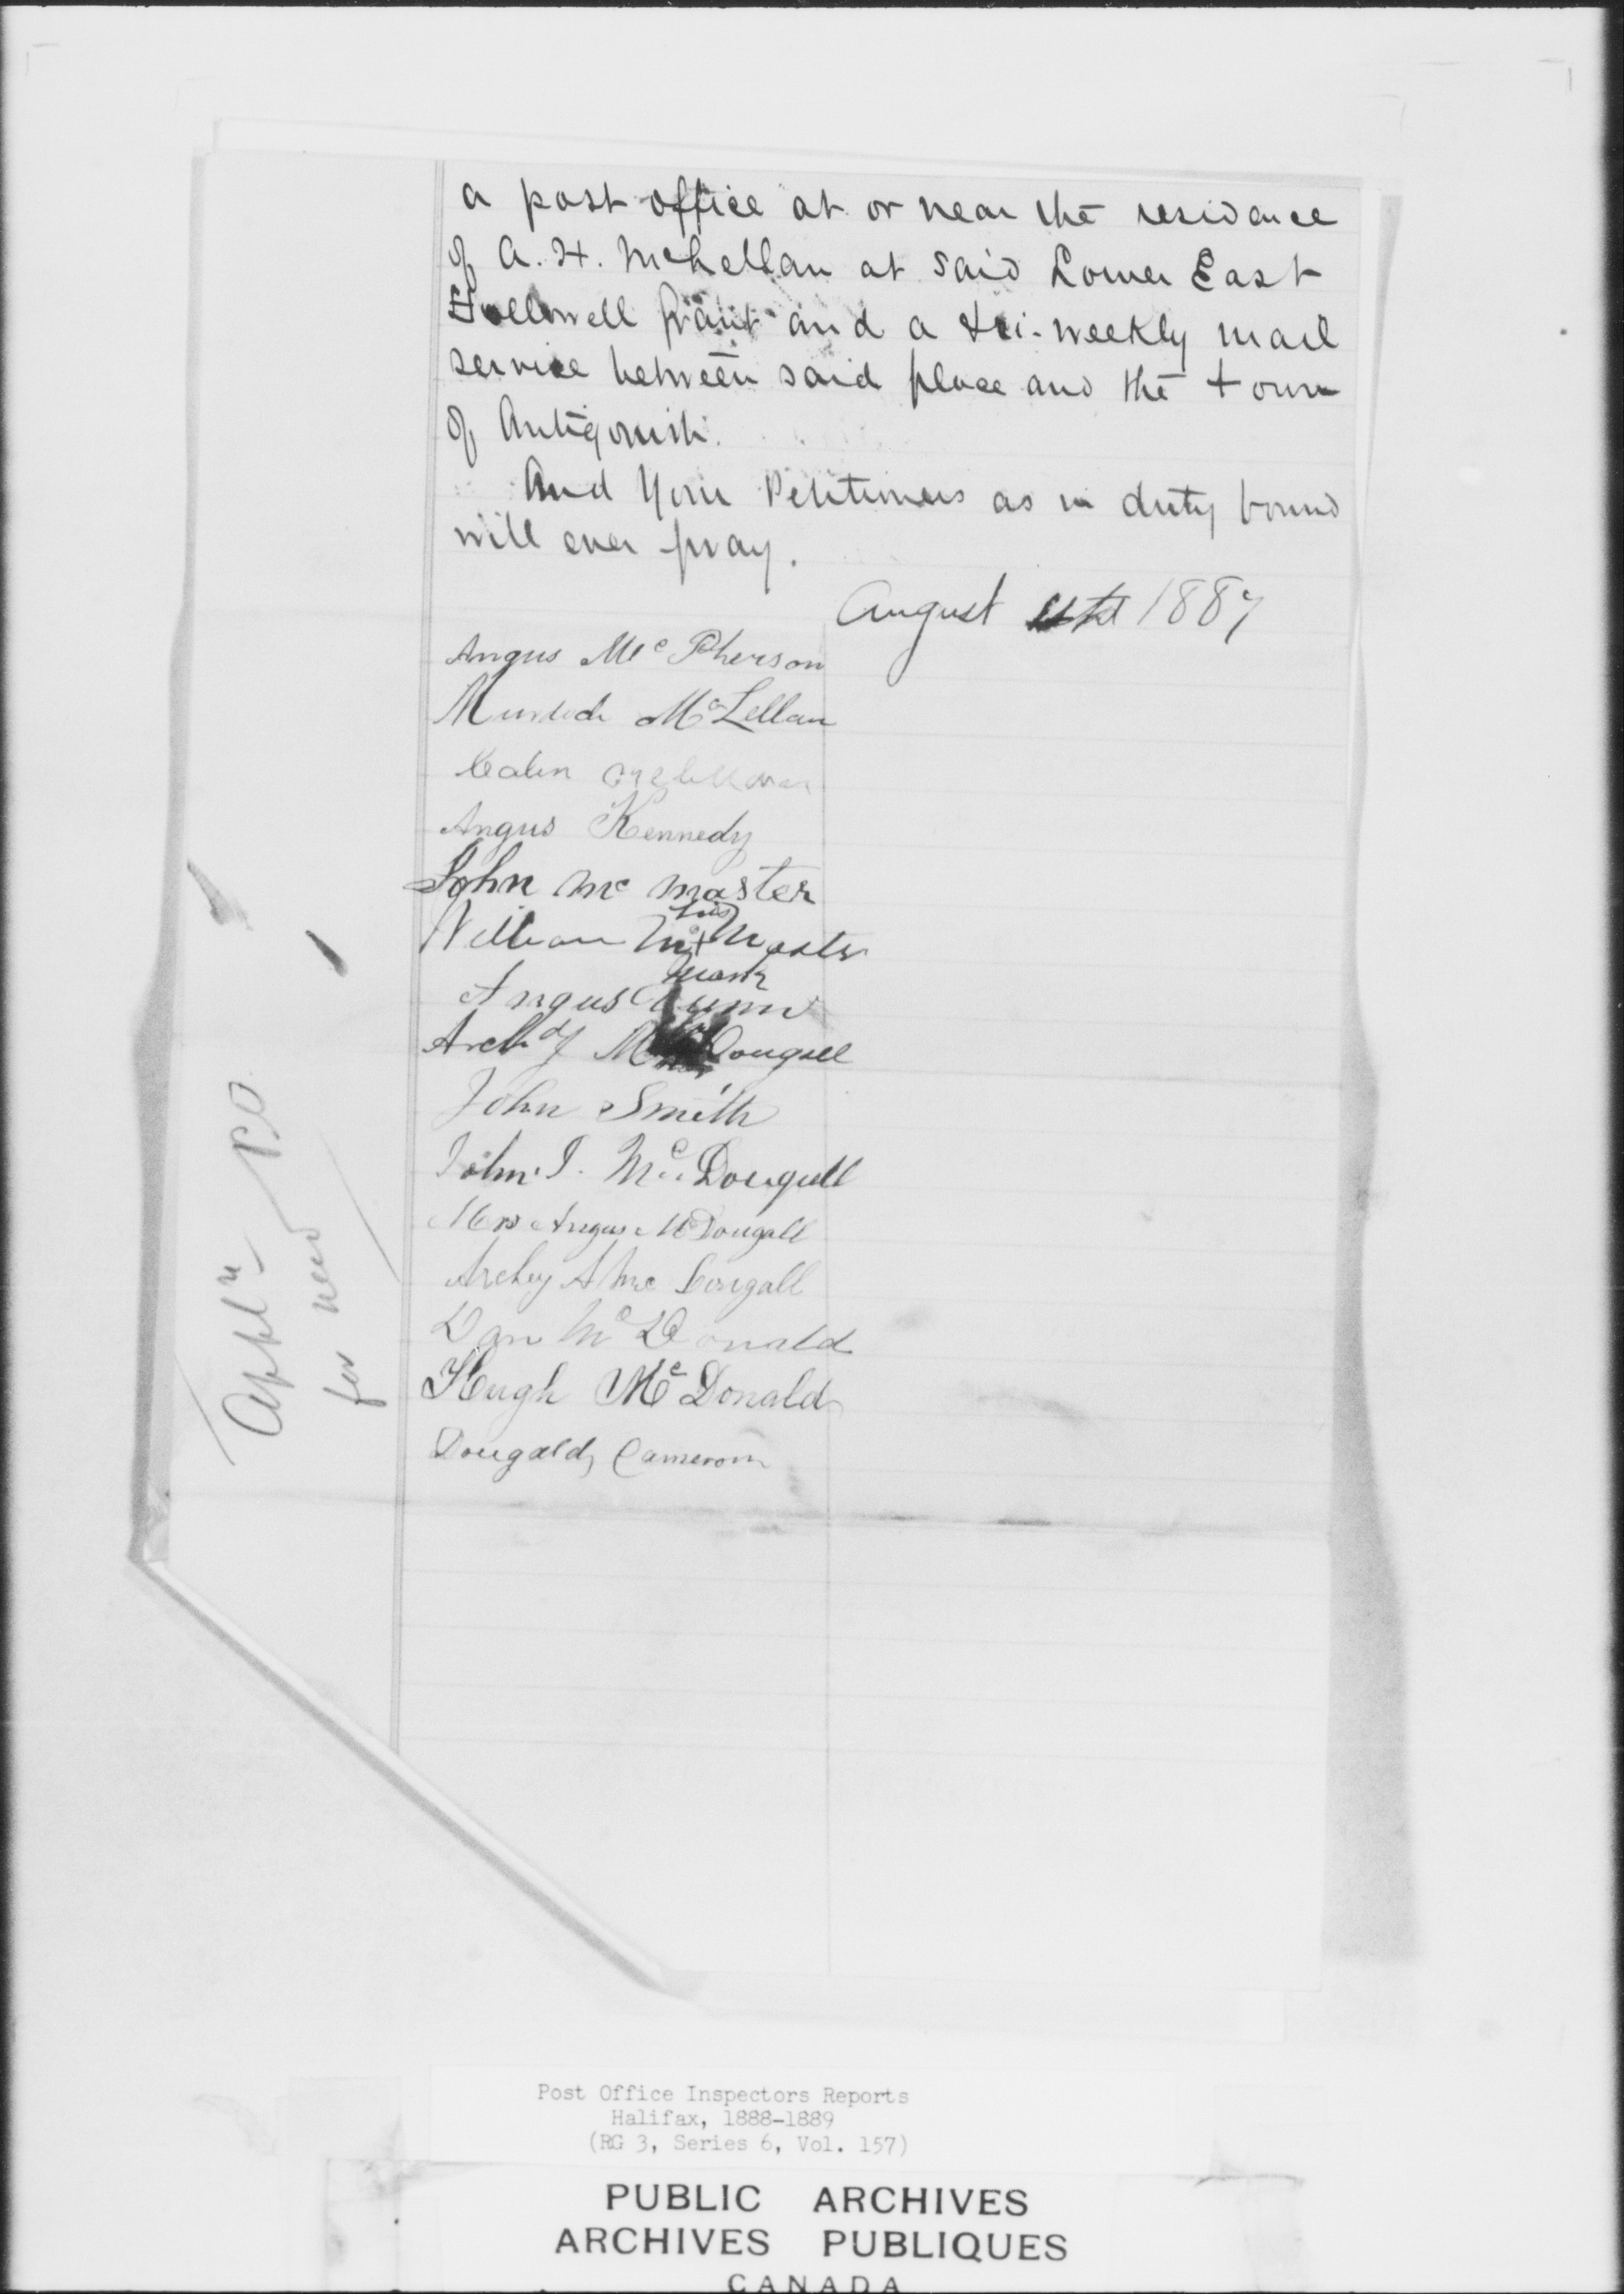 a post office at or near the residence
of A. H. McLellan at said Lower East
Hollowell Grant and a tri-weekly mail
service between said place and the town
of Antigonish.
And Your Petitioners as in duty bound
will ever pray.
August 1887
Angus Mc Pherson
Murdoch McLellan
Angus Kennedy
John Mc Master
his
William Mc + Master
mark
Angus
Archd McDougall
John Smith
John J. McDougall
Mrs Angus McDougall
Archy A Mc Dougall
Dan McDonald
Hugh McDonald
Dougald Cameron
Appln
for new P.O.
Post Office Inspectors Reports
Halifax, 1888-1889
(RG 3, Series 6, Vol. 157)
PUBLIC ARCHIVES
ARCHIVES PUBLIQUES
CANADA